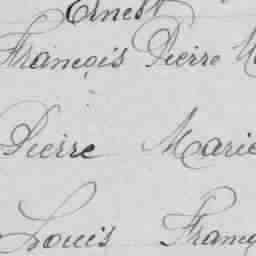 Ernest
François Pierre M
Pierre Marie
Louis Franç